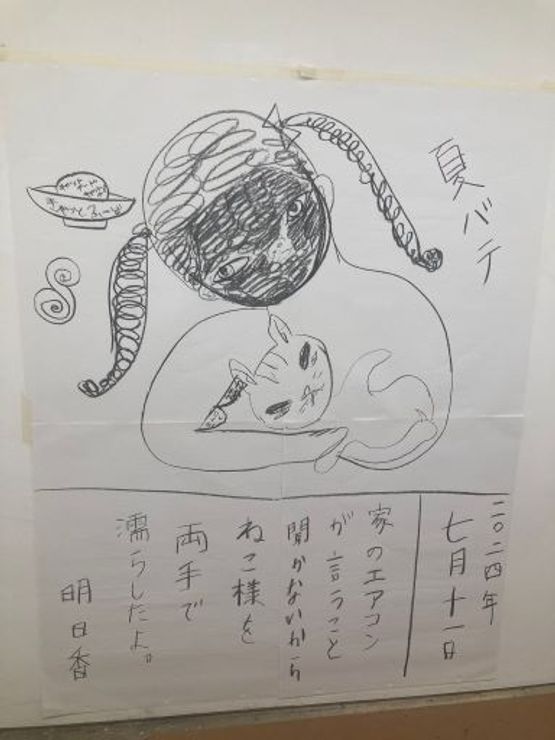 夏バテ
きゃっとふーど
二〇二四年
七月十一日
家のエアコン
が言うこと
聞かないから
ねこ様を
両手で
濡らしたよ。
明日香